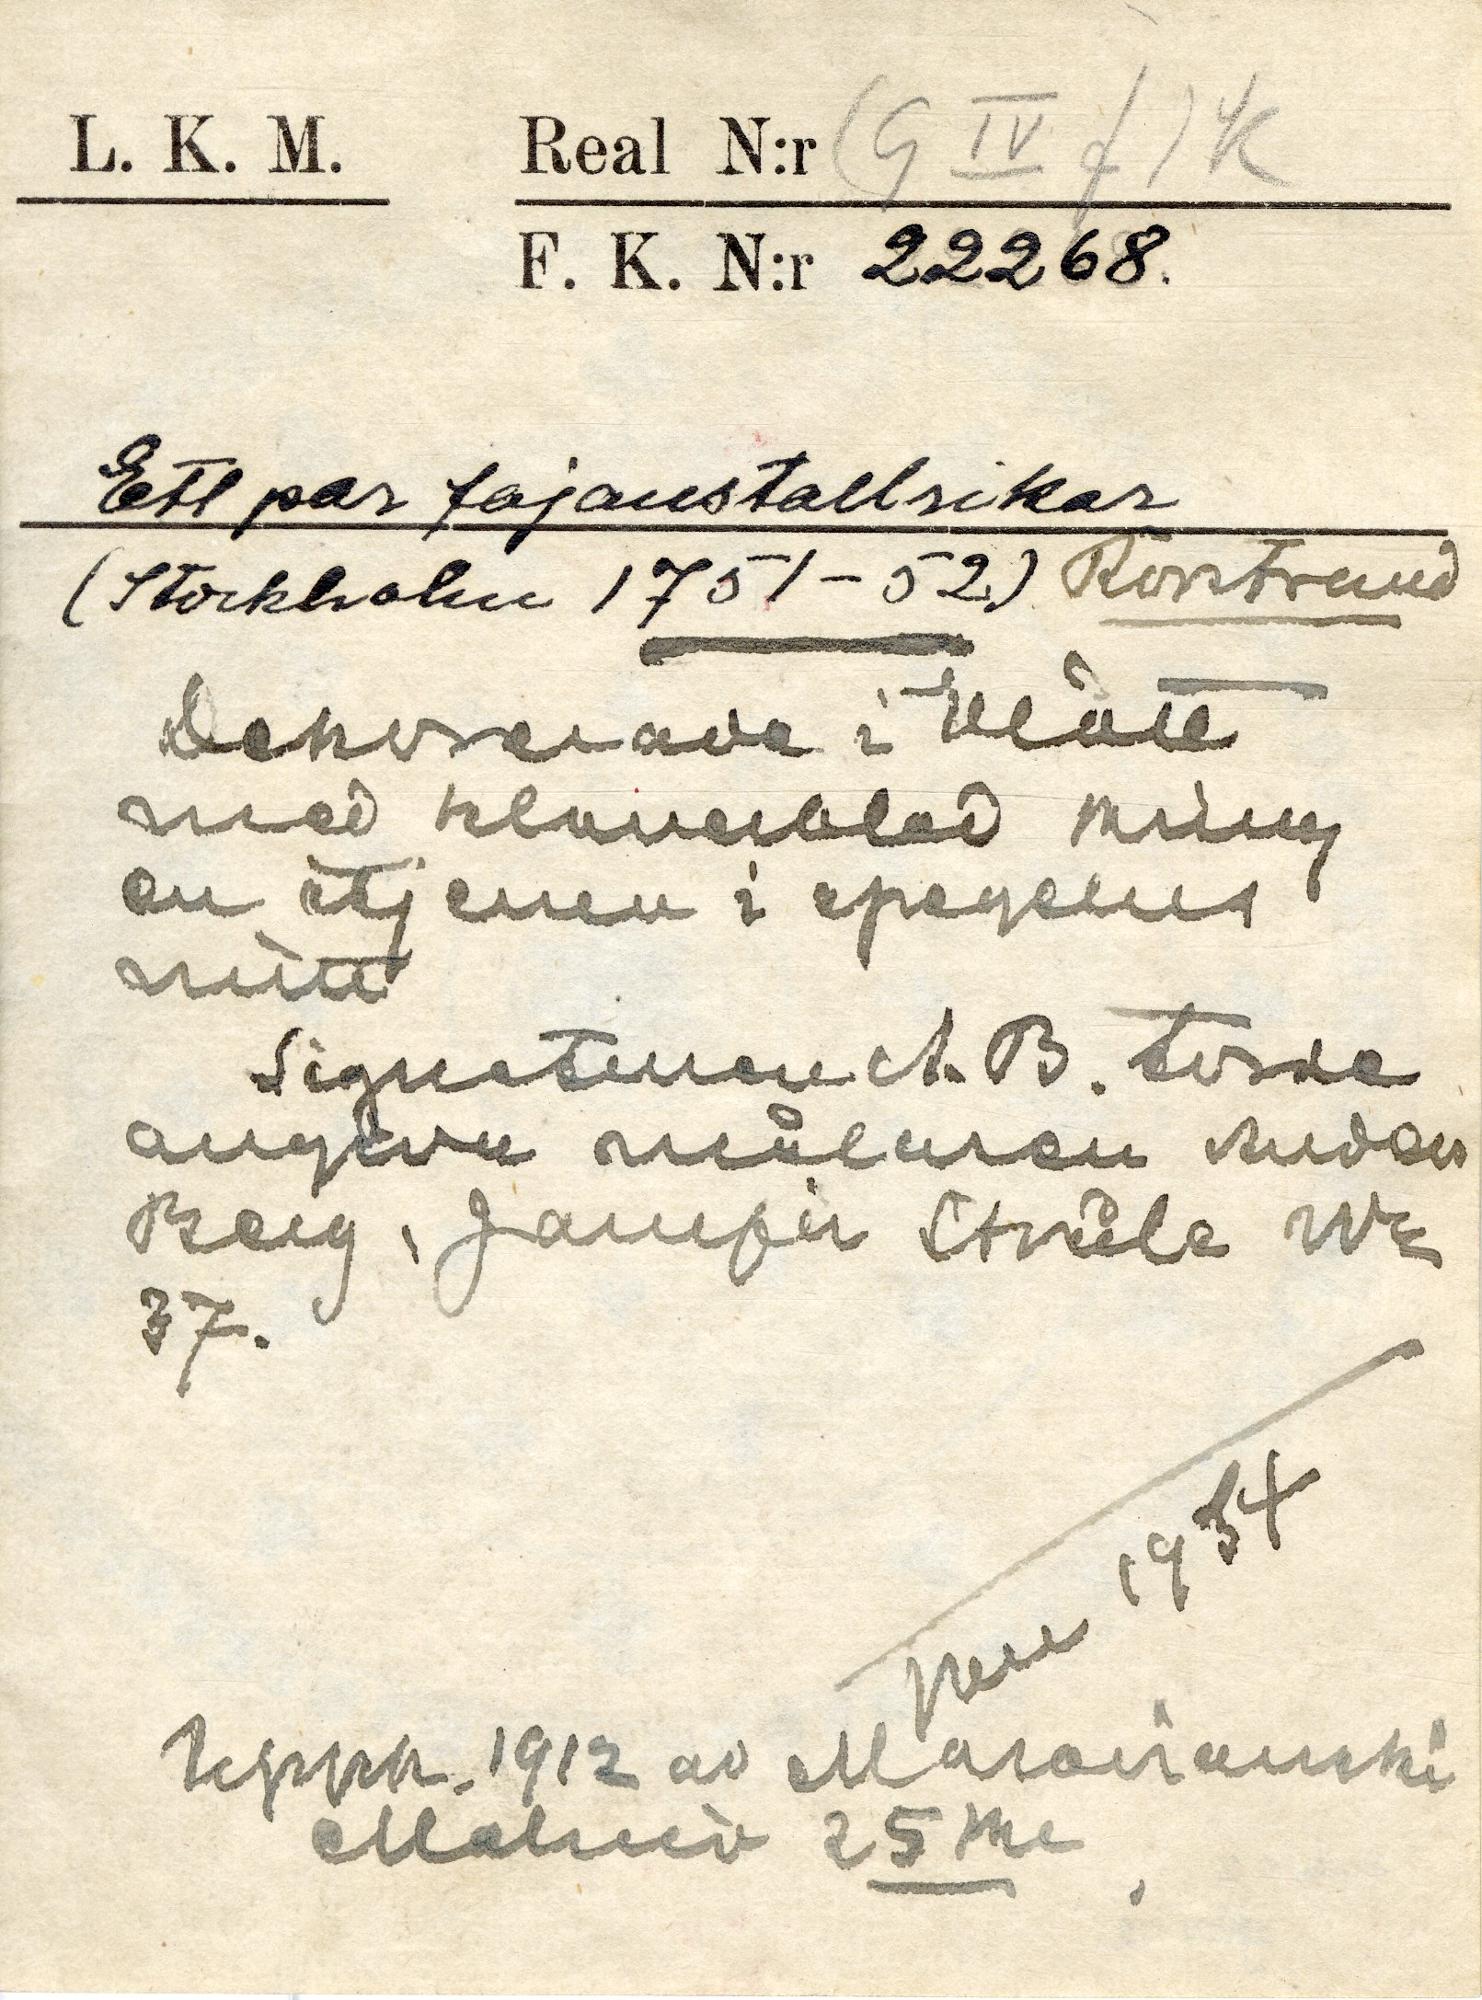 L. K. M.
Real N:r (G IV f) K
F. K. N:r 22268.
Ett par fajanstallrikar
(Stockholm 1751-52) Rörstrand
Dekorerade i blått
med klöverblad kring
en stjerna i spegelns
mitt
Signaturen A. B. torde
angiva målaren Anders
Berg, Jämför Stråle
37.
1934
Uppk. 1912 av
Malmö 25 Kr